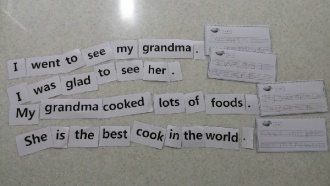 I went to see my grandma.
I was glad to see her.
My grandma cooked lots of foods.
She is the best cook in the world.